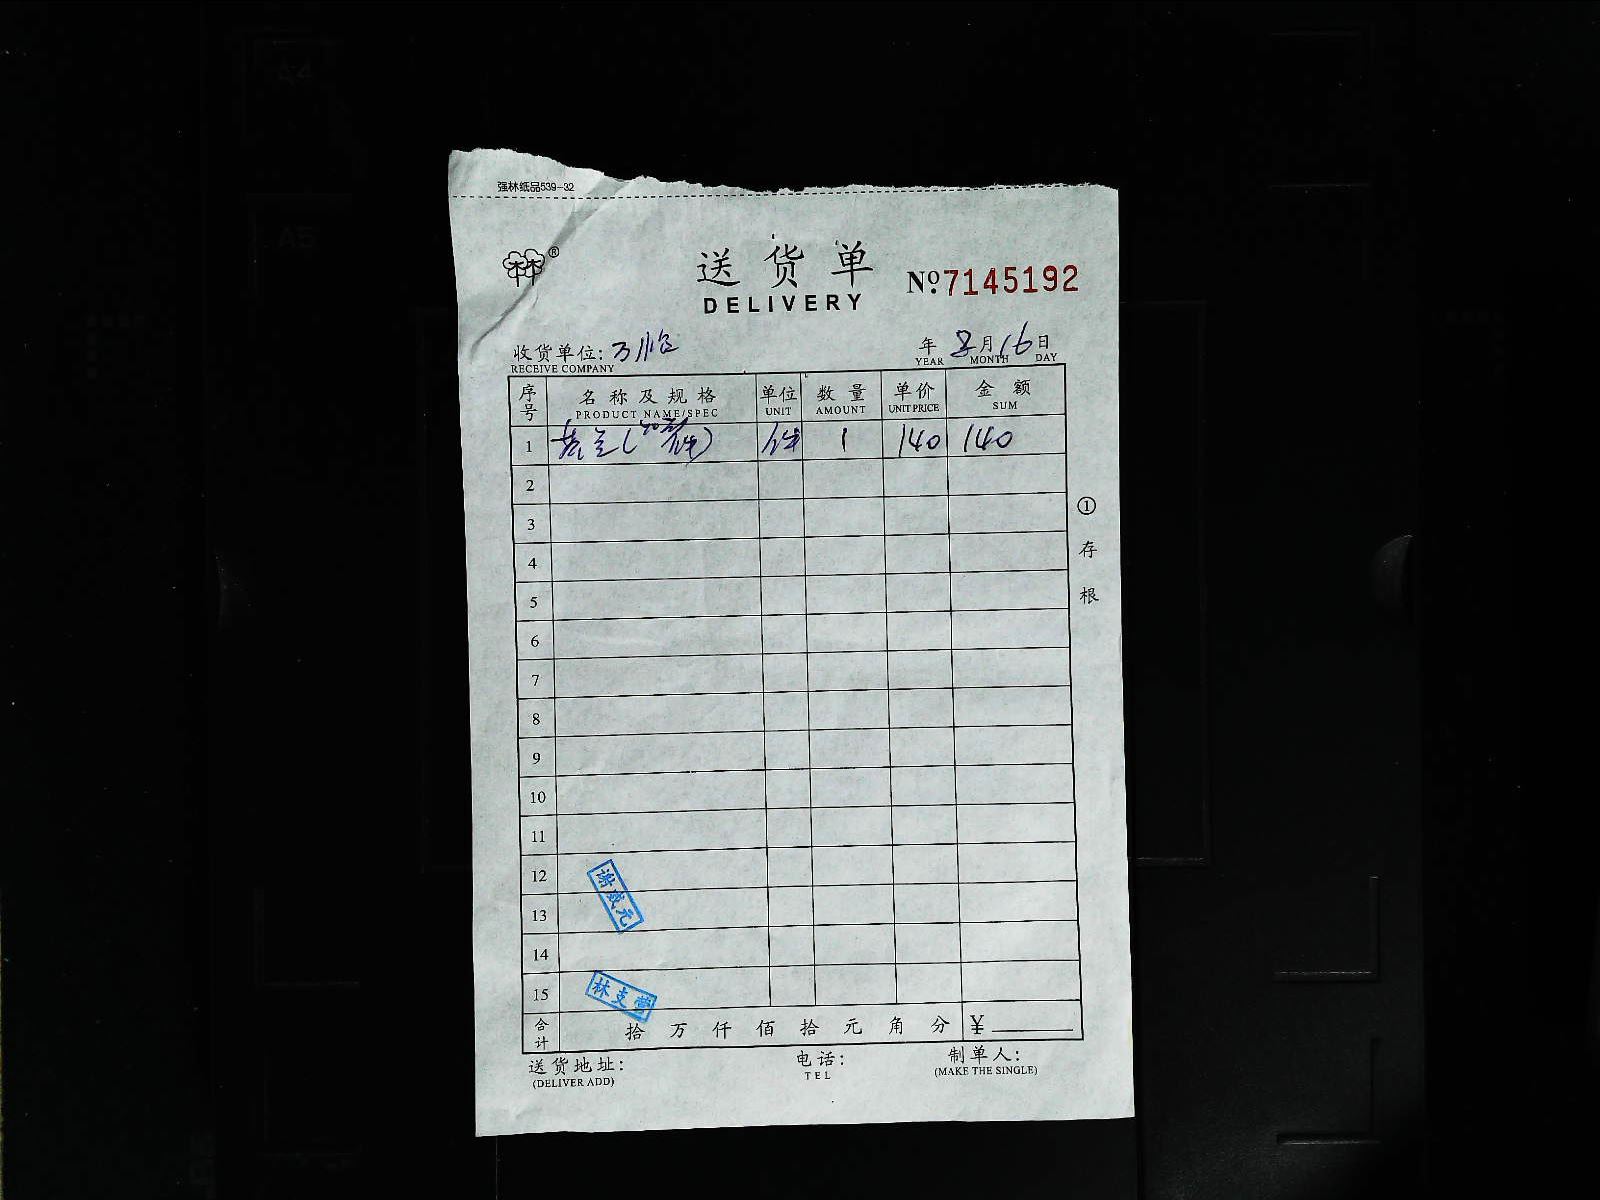 强林纸品539-32
林®
送货单
DELIVERY
Nº7145192
收货单位:
RECEIVE COMPANY
年 8月16日
YEAR MONTH DAY
序号 名称及规格 单位 数量 单价 金额
PRODUCT NAME/SPEC UNIT AMOUNT UNIT PRICE SUM
1 件 1 140 140
2
3
4
5
6
7
8
9
10
11
12
13
14
15
谢成元
林支堂
合计 拾 万 仟 佰 拾 元 角 分 ¥
送货地址: 电话: 制单人:
(DELIVER ADD) TEL (MAKE THE SINGLE)
①存根